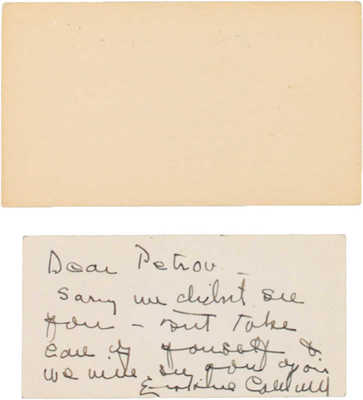 Dear Petrov –
Sorry we didn't see
you – but take
care of yourself &
we will see you again
Erskine Caldwell